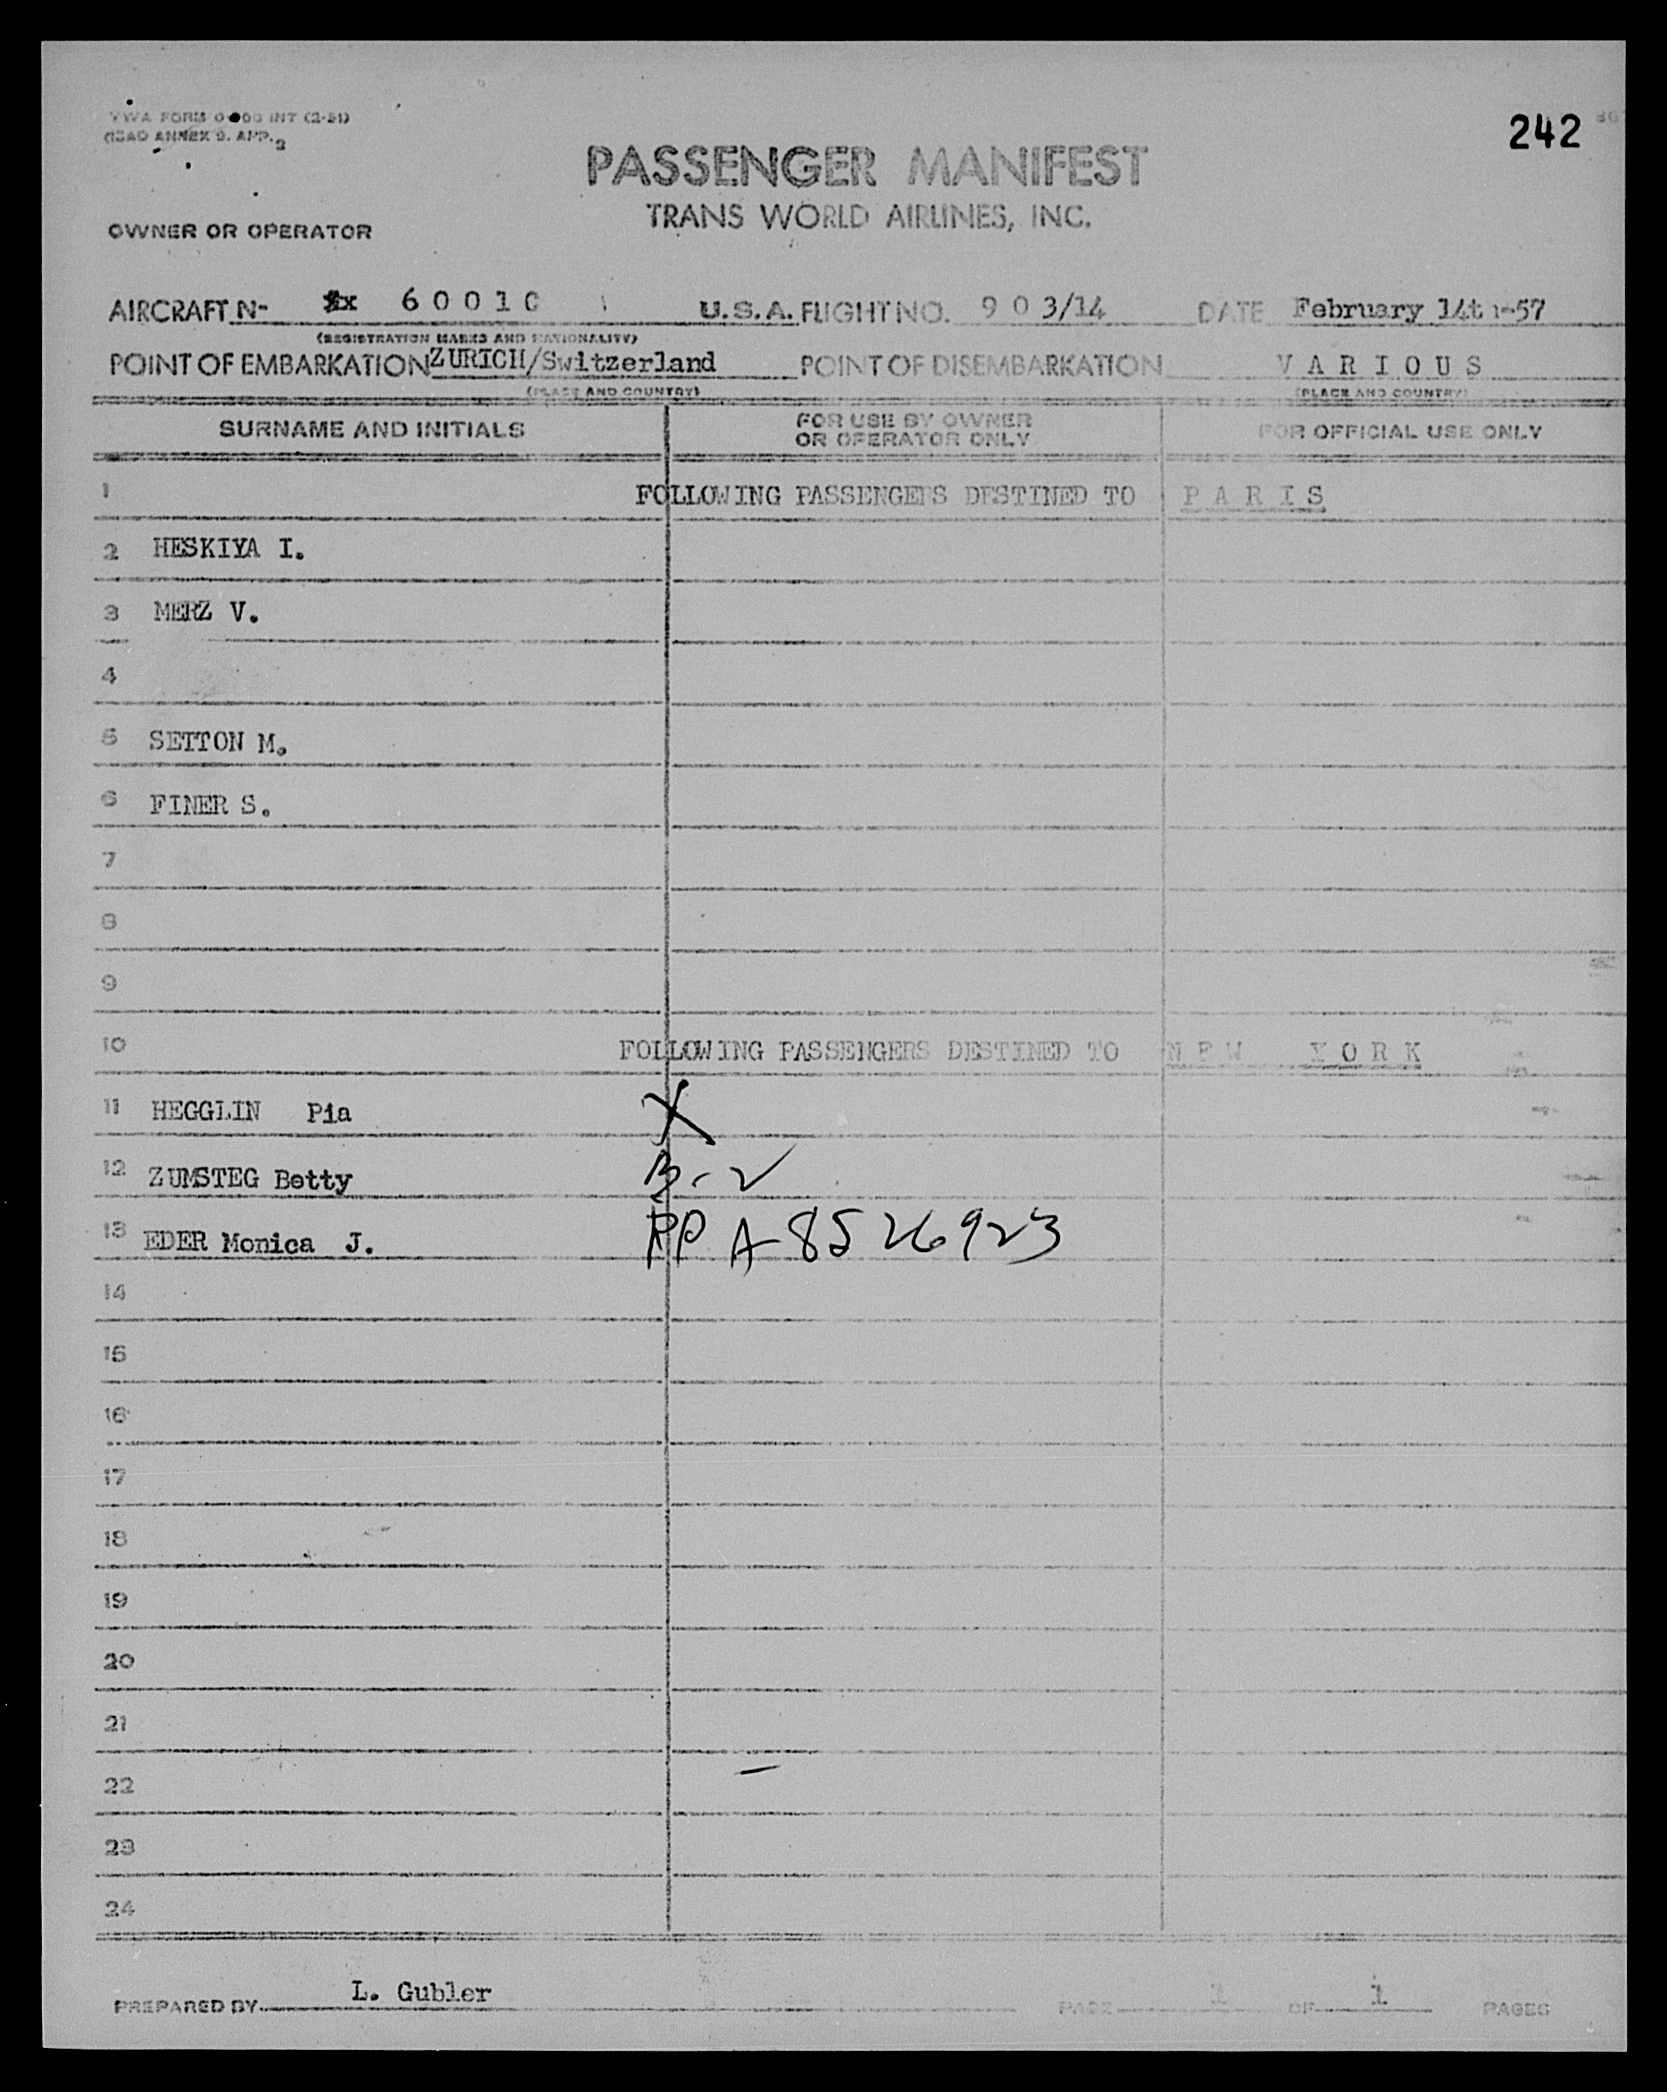 242
TWA FORM INT (2-51)
ICAO ANNEX 9. APP. 2
PASSENGER MANIFEST
TRANS WORLD AIRLINES, INC.
OWNER OR OPERATOR
AIRCRAFT N- 6 0 0 1 C U.S.A. FLIGHT NO. 9 0 3/14 DATE February 14th-57
(REGISTRATION MARKS AND NATIONALITY)
POINT OF EMBARKATION ZURICH/Switzerland POINT OF DISEMBARKATION V A R I O U S
(PLACE AND COUNTRY) (PLACE AND COUNTRY)
SURNAME AND INITIALS FOR USE BY OWNER OR OPERATOR ONLY FOR OFFICIAL USE ONLY
1 FOLLOWING PASSENGERS DESTINED TO P A R I S
2 HESKIYA I.
3 MERZ V.
4
5 SETTON M.
6 FINER S.
7
8
9
10 FOLLOWING PASSENGERS DESTINED TO N E W Y O R K
11 HEGGLIN Pia X
12 ZUMSTEG Betty B-2
13 EDER Monica J. PP A-8526923
14
15
16
17
18
19
20
21
22
23
24
PREPARED BY L. Gubler PAGE 1 OF 1 PAGES